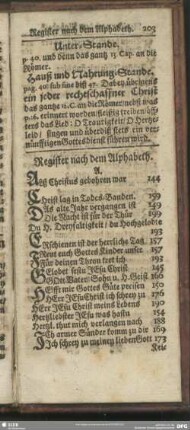 Register nach dem Alphabeth. 203
Unter-Stande.
p. 40. und denn das gantz 13. Cap. an die
Römer.
Hauß und Nahrung-Stande.
pag. 40. sub fine biß 47. Dabey übrigens
ein jeder rechtschaffner Christ
das gantze 12. C. an die Römer nechst was
p. 16. erinnert worden fleißig
ders das Lied: O Traurigkeit: O Hertz
leid! singen und überdiß stets ein ver-
nünfftigen Gottesdienst führen wird.
Register nach dem Alphabeth.
A.
Als Christus gebohren war 144
C.
Christ lag in Todes-Banden. 159
Das alte Jahr vergangen ist 149
Die Nacht ist für der Thür 199
Du H. Dreyfaltigkeit / du Hochgelobte
193
Erschienen ist der herrliche Tag. 157
Freut euch Gottes Kinder unser 157
Für deinen Thron tret ich 193
Gelobet seystu JEsu Christ. 145
GOtt Vater, Sohn u. H. Geist 166
Helfft mir Gottes Güte preisen 150
HErr JEsu Christ ich schrey zu 176
HErr JEsu Christ meins Lebens 190
Hertzliebster JEsu was hastu 154
Hertzl. thut mich verlangen nach 188
Ich armer Sünder komm zu die 169
Ich schrey zu meinem lieben Gott 173